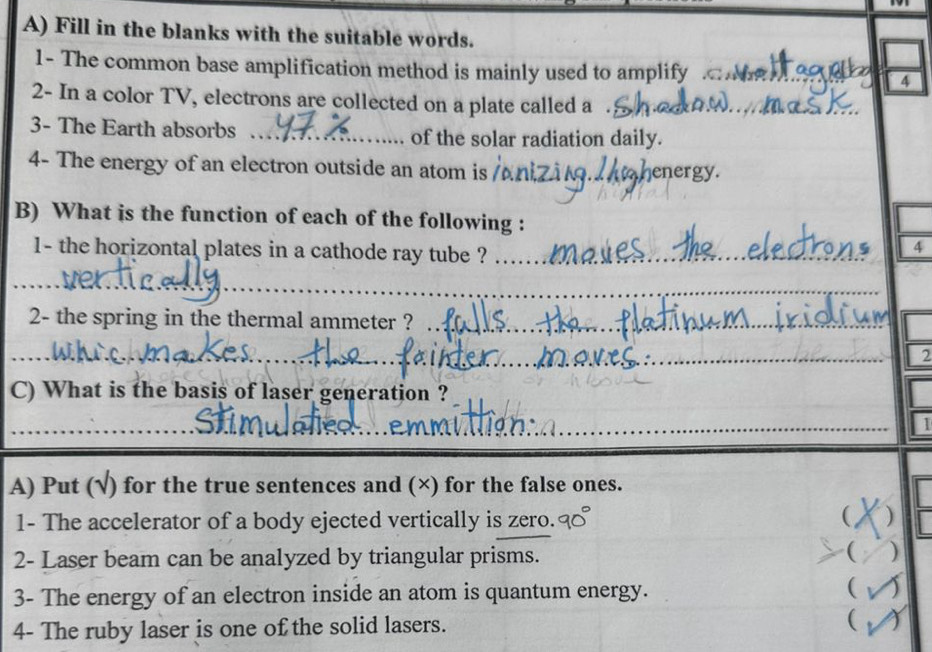 A) Fill in the blanks with the suitable words.
1- The common base amplification method is mainly used to amplify
4
2- In a color TV, electrons are collected on a plate called a .Shadow mask
3- The Earth absorbs 47% of the solar radiation daily.
4- The energy of an electron outside an atom is ionizing / high energy.
B) What is the function of each of the following :
1- the horizontal plates in a cathode ray tube ? moves the electrons
4
vertically
2- the spring in the thermal ammeter ? falls the platinum iridium
whic makes the fainter moves.
2
C) What is the basis of laser generation ?
1
Stimulatied emmittion.
A) Put (√) for the true sentences and (×) for the false ones.
1- The accelerator of a body ejected vertically is zero. 90° (X)
2- Laser beam can be analyzed by triangular prisms. ( )
3- The energy of an electron inside an atom is quantum energy. (✓)
4- The ruby laser is one of the solid lasers. (✓)